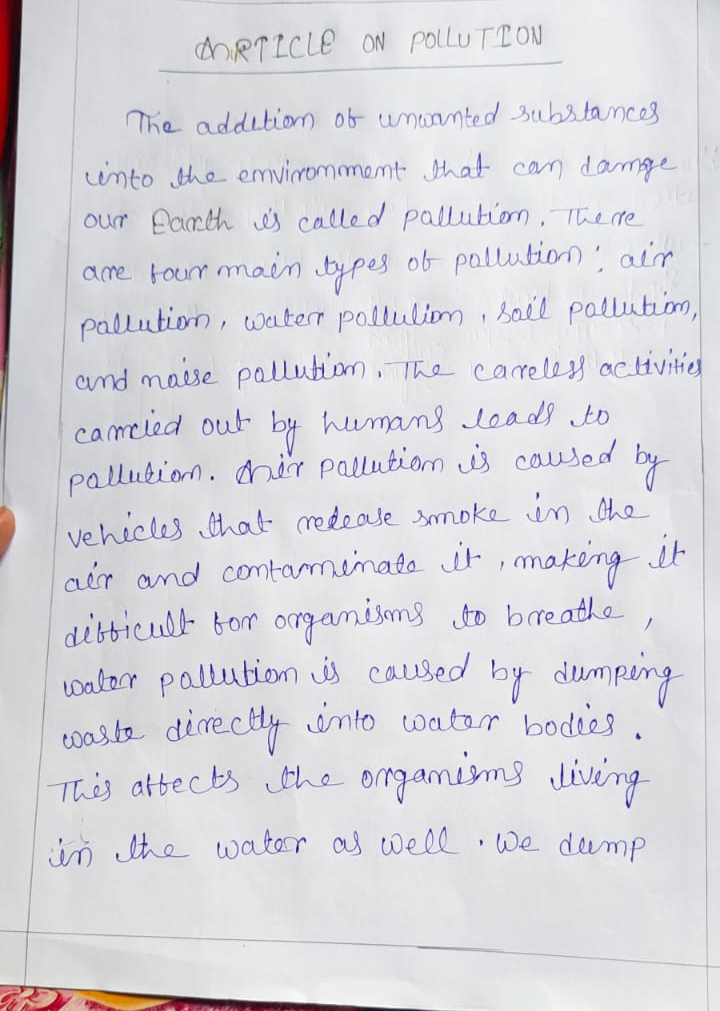 ARTICLE ON POLLUTION
The addition of unwanted substances
into the environment that can damge
our Earth is called pollution. There
are four main types of pollution: air
pollution, water pollution, soil pollution,
and noise pollution. The careless activities
carried out by humans leads to
pollution. Air pollution is caused by
vehicles that release smoke in the
air and contaminate it, making it
difficult for organisms to breathe,
water pollution is caused by dumping
waste directly into water bodies.
This affects the organisms living
in the water as well. We dump